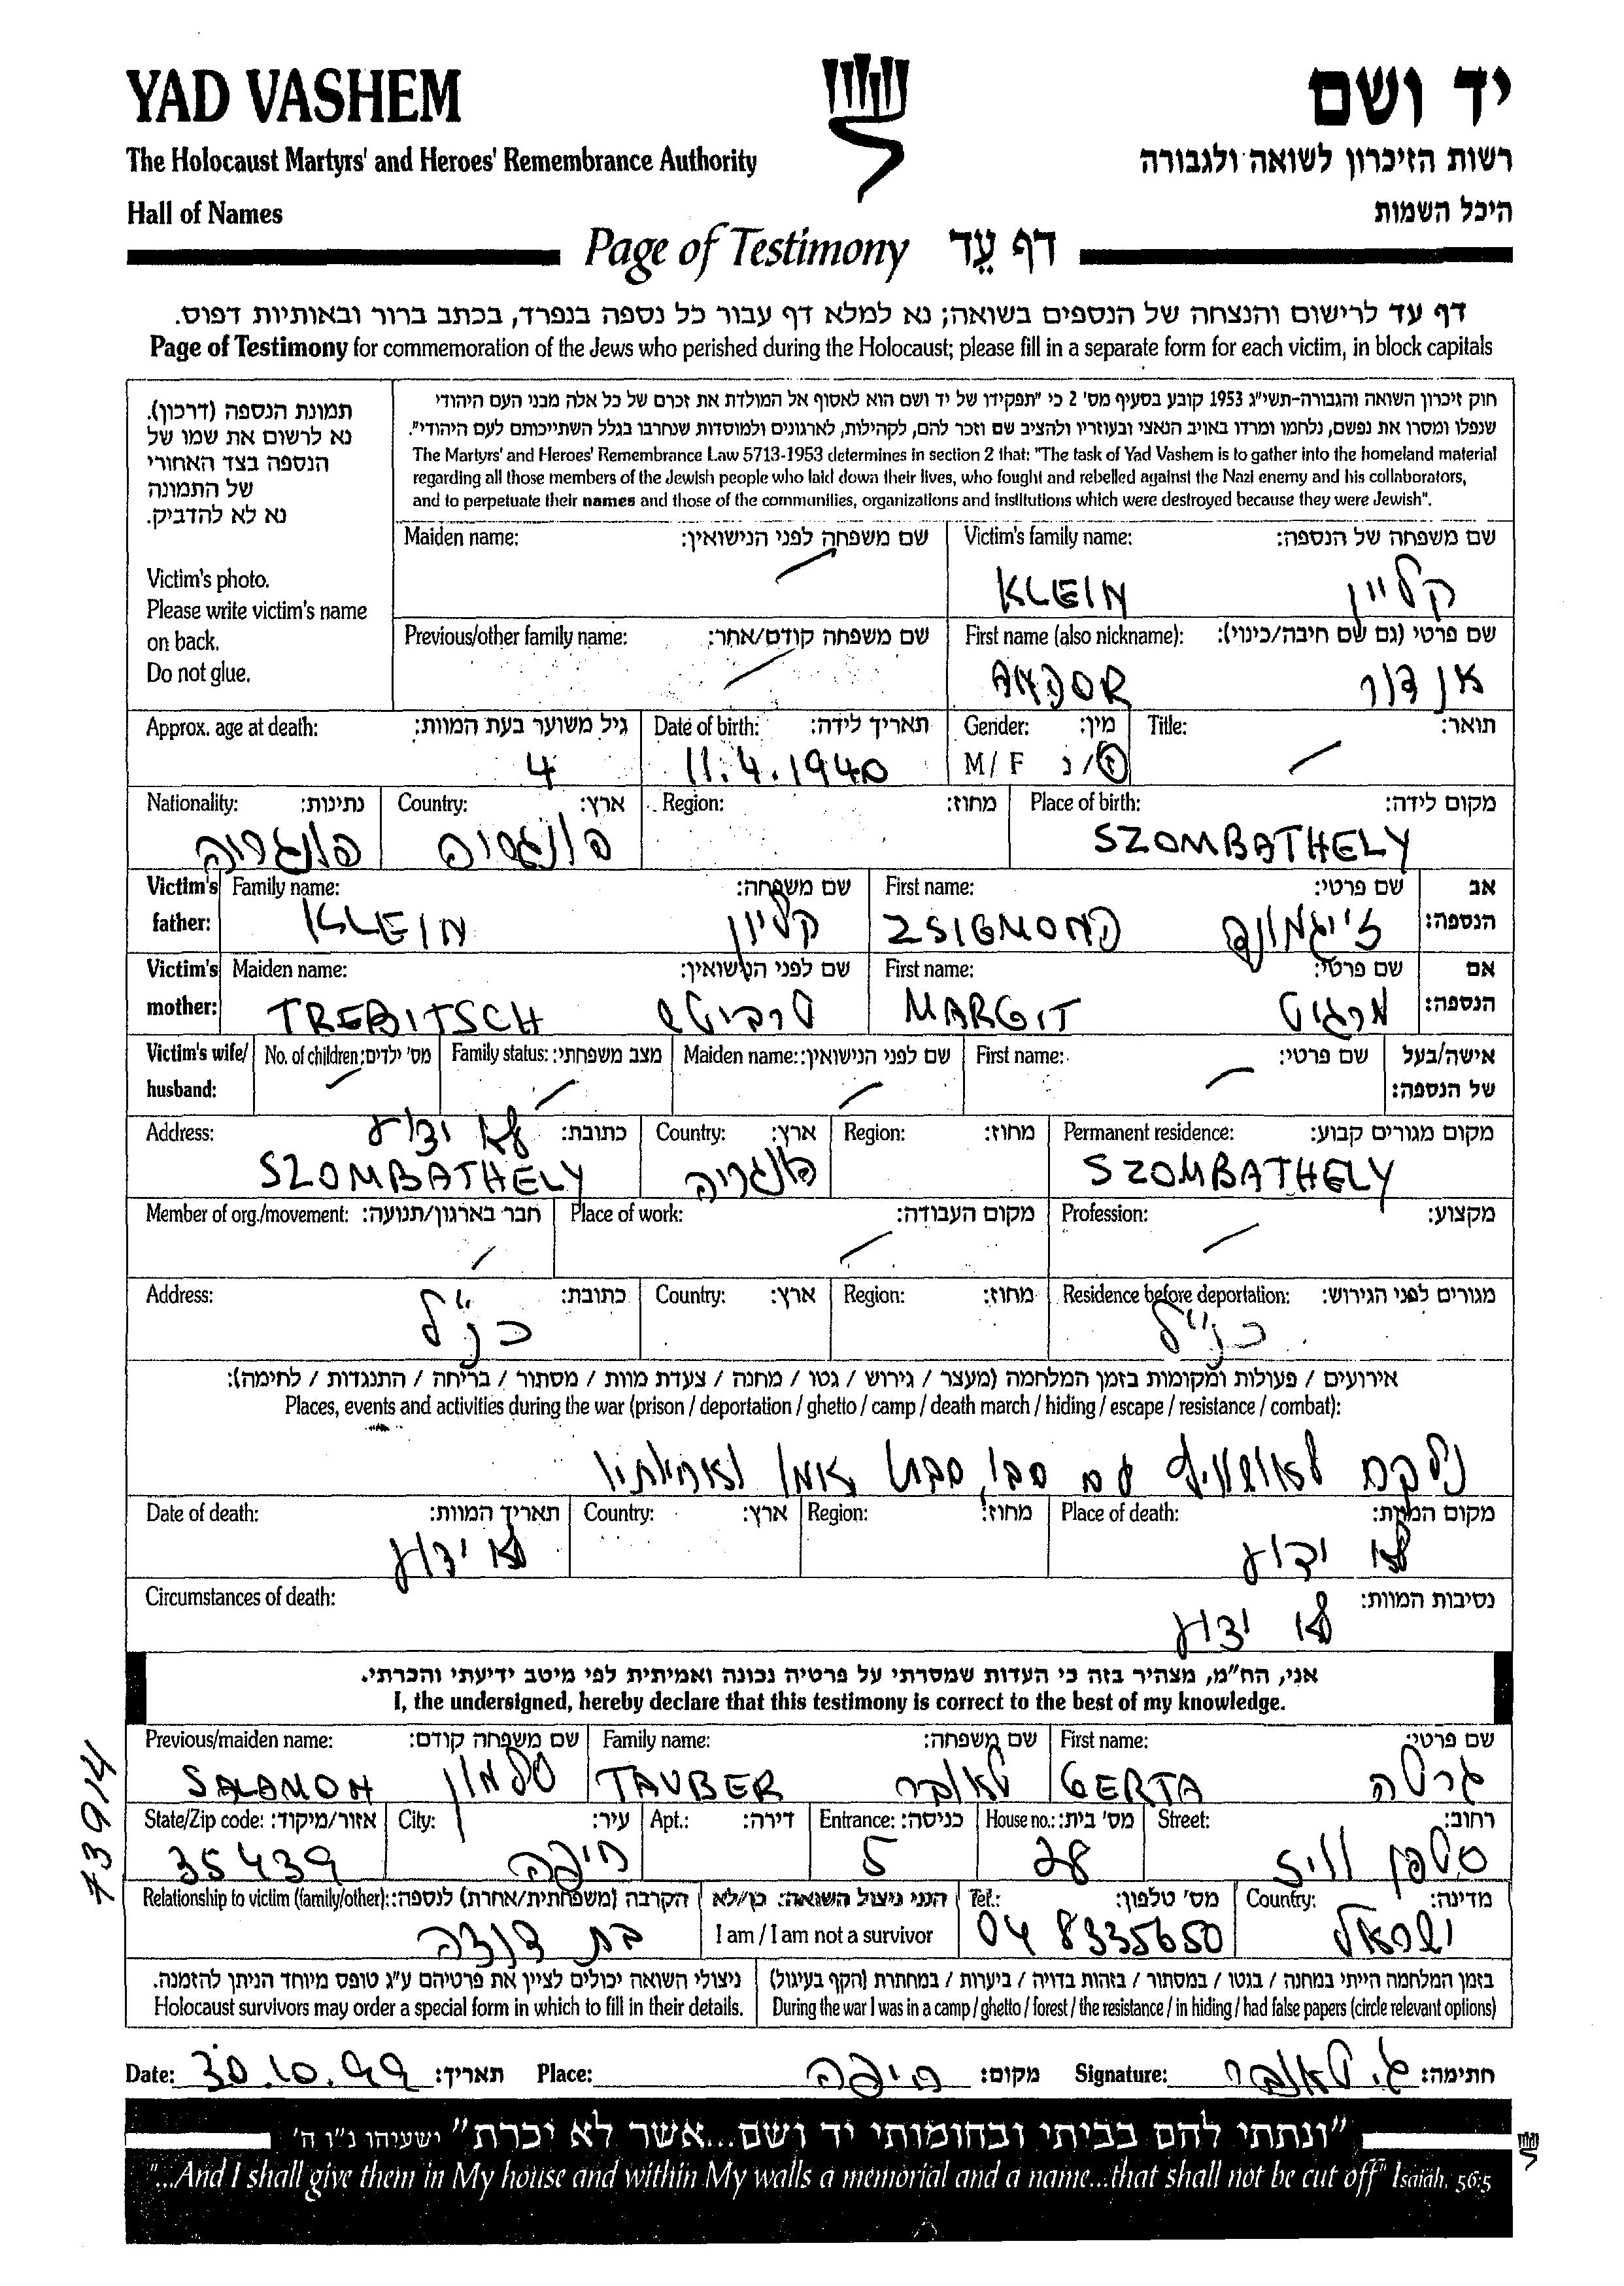 YAD VASHEM
יד ושם
The Holocaust Martyrs' and Heroes' Remembrance Authority
רשות הזיכרון לשואה ולגבורה
Hall of Names
היכל השמות
Page of Testimony דף עֵד
דף עד לרישום והנצחה של הנספים בשואה; נא למלא דף עבור כל נספה בנפרד, בכתב ברור ובאותיות דפוס.
Page of Testimony for commemoration of the Jews who perished during the Holocaust; please fill in a separate form for each victim, in block capitals
תמונת הנספה (דרכון).
נא לרשום את שמו של
הנספה בצד האחורי
של התמונה
נא לא להדביק.
Victim's photo.
Please write victim's name
on back.
Do not glue.
חוק זיכרון השואה והגבורה-תשי"ג 1953 קובע בסעיף מס' 2 כי "תפקידו של יד ושם הוא לאסוף אל המולדת את זכרם של כל אלה מבני העם היהודי
שנפלו ומסרו את נפשם, נלחמו ומרדו באויב הנאצי ובעוזריו ולהציב שם וזכר להם, לקהילות, לארגונים ולמוסדות שנחרבו בגלל השתייכותם לעם היהודי".
The Martyrs' and Heroes' Remembrance Law 5713-1953 determines in section 2 that: "The task of Yad Vashem is to gather into the homeland material
regarding all those members of the Jewish people who laid down their lives, who fought and rebelled against the Nazi enemy and his collaborators,
and to perpetuate their names and those of the communities, organizations and institutions which were destroyed because they were Jewish".
Maiden name: שם משפחה לפני הנישואין: Victim's family name: שם משפחה של הנספה:
KLEIN קליין
Previous/other family name: שם משפחה קודם/אחר: First name (also nickname): שם פרטי (גם שם חיבה/כינוי):
ANDOR אנדור
Approx. age at death: גיל משוער בעת המוות: Date of birth: תאריך לידה: Gender: מין: Title: תואר:
4 11.4.1940 M/ F ז/נ
Nationality: נתינות: Country: ארץ: Region: מחוז: Place of birth: מקום לידה:
הונגריה הונגריה SZOMBATHELY
Victim's father: Family name: שם משפחה: First name: שם פרטי: אב הנספה:
KLEIN קליין ZSIGMOND ז'יגמונד
Victim's mother: Maiden name: שם לפני הנישואין: First name: שם פרטי: אם הנספה:
TREBITSCH טרביטש MARGIT מרגיט
Victim's wife/ husband: No. of children: מס' ילדים: Family status: מצב משפחתי: Maiden name: שם לפני הנישואין: First name: שם פרטי: אישה/בעל של הנספה:
Address: כתובת: Country: ארץ: Region: מחוז: Permanent residence: מקום מגורים קבוע:
לא ידוע
SZOMBATHELY הונגריה SZOMBATHELY
Member of org./movement: חבר בארגון/תנועה: Place of work: מקום העבודה: Profession: מקצוע:
Address: כתובת: Country: ארץ: Region: מחוז: Residence before deportation: מגורים לפני הגירוש:
כנ"ל כנ"ל
אירועים / פעולות ומקומות בזמן המלחמה (מעצר / גירוש / גטו / מחנה / צעדת מוות / מסתור / בריחה / התנגדות / לחימה):
Places, events and activities during the war (prison / deportation / ghetto / camp / death march / hiding / escape / resistance / combat):
נלקח לאושוויץ עם סבו, סבתו אמו ואחיותיו
Date of death: תאריך המוות: Country: ארץ: Region: מחוז: Place of death: מקום המוות:
לא ידוע לא ידוע
Circumstances of death: נסיבות המוות:
לא ידוע
אני, הח"מ, מצהיר בזה כי העדות שמסרתי על פרטיה נכונה ואמיתית לפי מיטב ידיעתי והכרתי.
I, the undersigned, hereby declare that this testimony is correct to the best of my knowledge.
Previous/maiden name: שם משפחה קודם: Family name: שם משפחה: First name: שם פרטי:
SALAMON סלמון TAUBER טאובר GERTA גרטה
State/Zip code: אזור/מיקוד: City: עיר: Apt.: דירה: Entrance: כניסה: House no.: מס' בית: Street: רחוב:
35439 חיפה 5 28 סטפן ווייז
Relationship to victim (family/other): הקרבה (משפחתית/אחרת) לנספה: הנני ניצול השואה: כן/לא Tel.: מס' טלפון: Country: מדינה:
בת דודה I am / I am not a survivor 04 8335650 ישראל
ניצולי השואה יכולים לציין את פרטיהם ע"ג טופס מיוחד הניתן להזמנה.
Holocaust survivors may order a special form in which to fill in their details.
בזמן המלחמה הייתי במחנה / בגטו / במסתור / בזהות בדויה / ביערות / במחתרת (הקף בעיגול)
During the war I was in a camp / ghetto / forest / the resistance / in hiding / had false papers (circle relevant options)
Date: 30.10.99 תאריך: Place: חיפה מקום: Signature: ג. טאובר חתימה:
"ונתתי להם בביתי ובחומותי יד ושם...אשר לא יכרת" ישעיהו נ"ו ה'
"...And I shall give them in My house and within My walls a memorial and a name...that shall not be cut off" Isaiah, 56:5